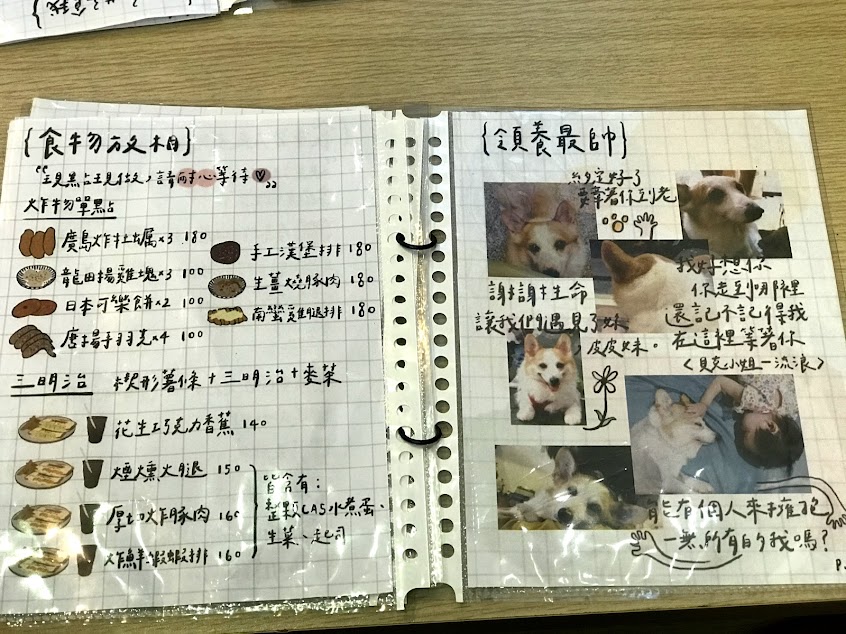 {食物放相}
"現點現做,請耐心等待♡"
炸物單點
廣島炸牡蠣×3 180
龍田揚雞塊×3 100
日本可樂餅×2 100
唐揚手羽先×4 100
手工漢堡排 180
生薑燒豚肉 180
南蠻雞腿排 180
三明治 楔形薯條+三明治+麥茶
花生巧克力香蕉 140
煙燻火腿 150
厚切炸豚肉 160
炸鮮蝦蝦排 160
皆含有:
整顆CAS水煮蛋、
生菜、起司
{領養最帥}
約定好了
要牽著你到老
謝謝生命
讓我們遇見了妳
皮皮妹。
我好想你
你走到哪裡
還記不記得我
在這裡等著你
<貝克小姐—流浪>
能有個人來擁抱
一無所有的我嗎?